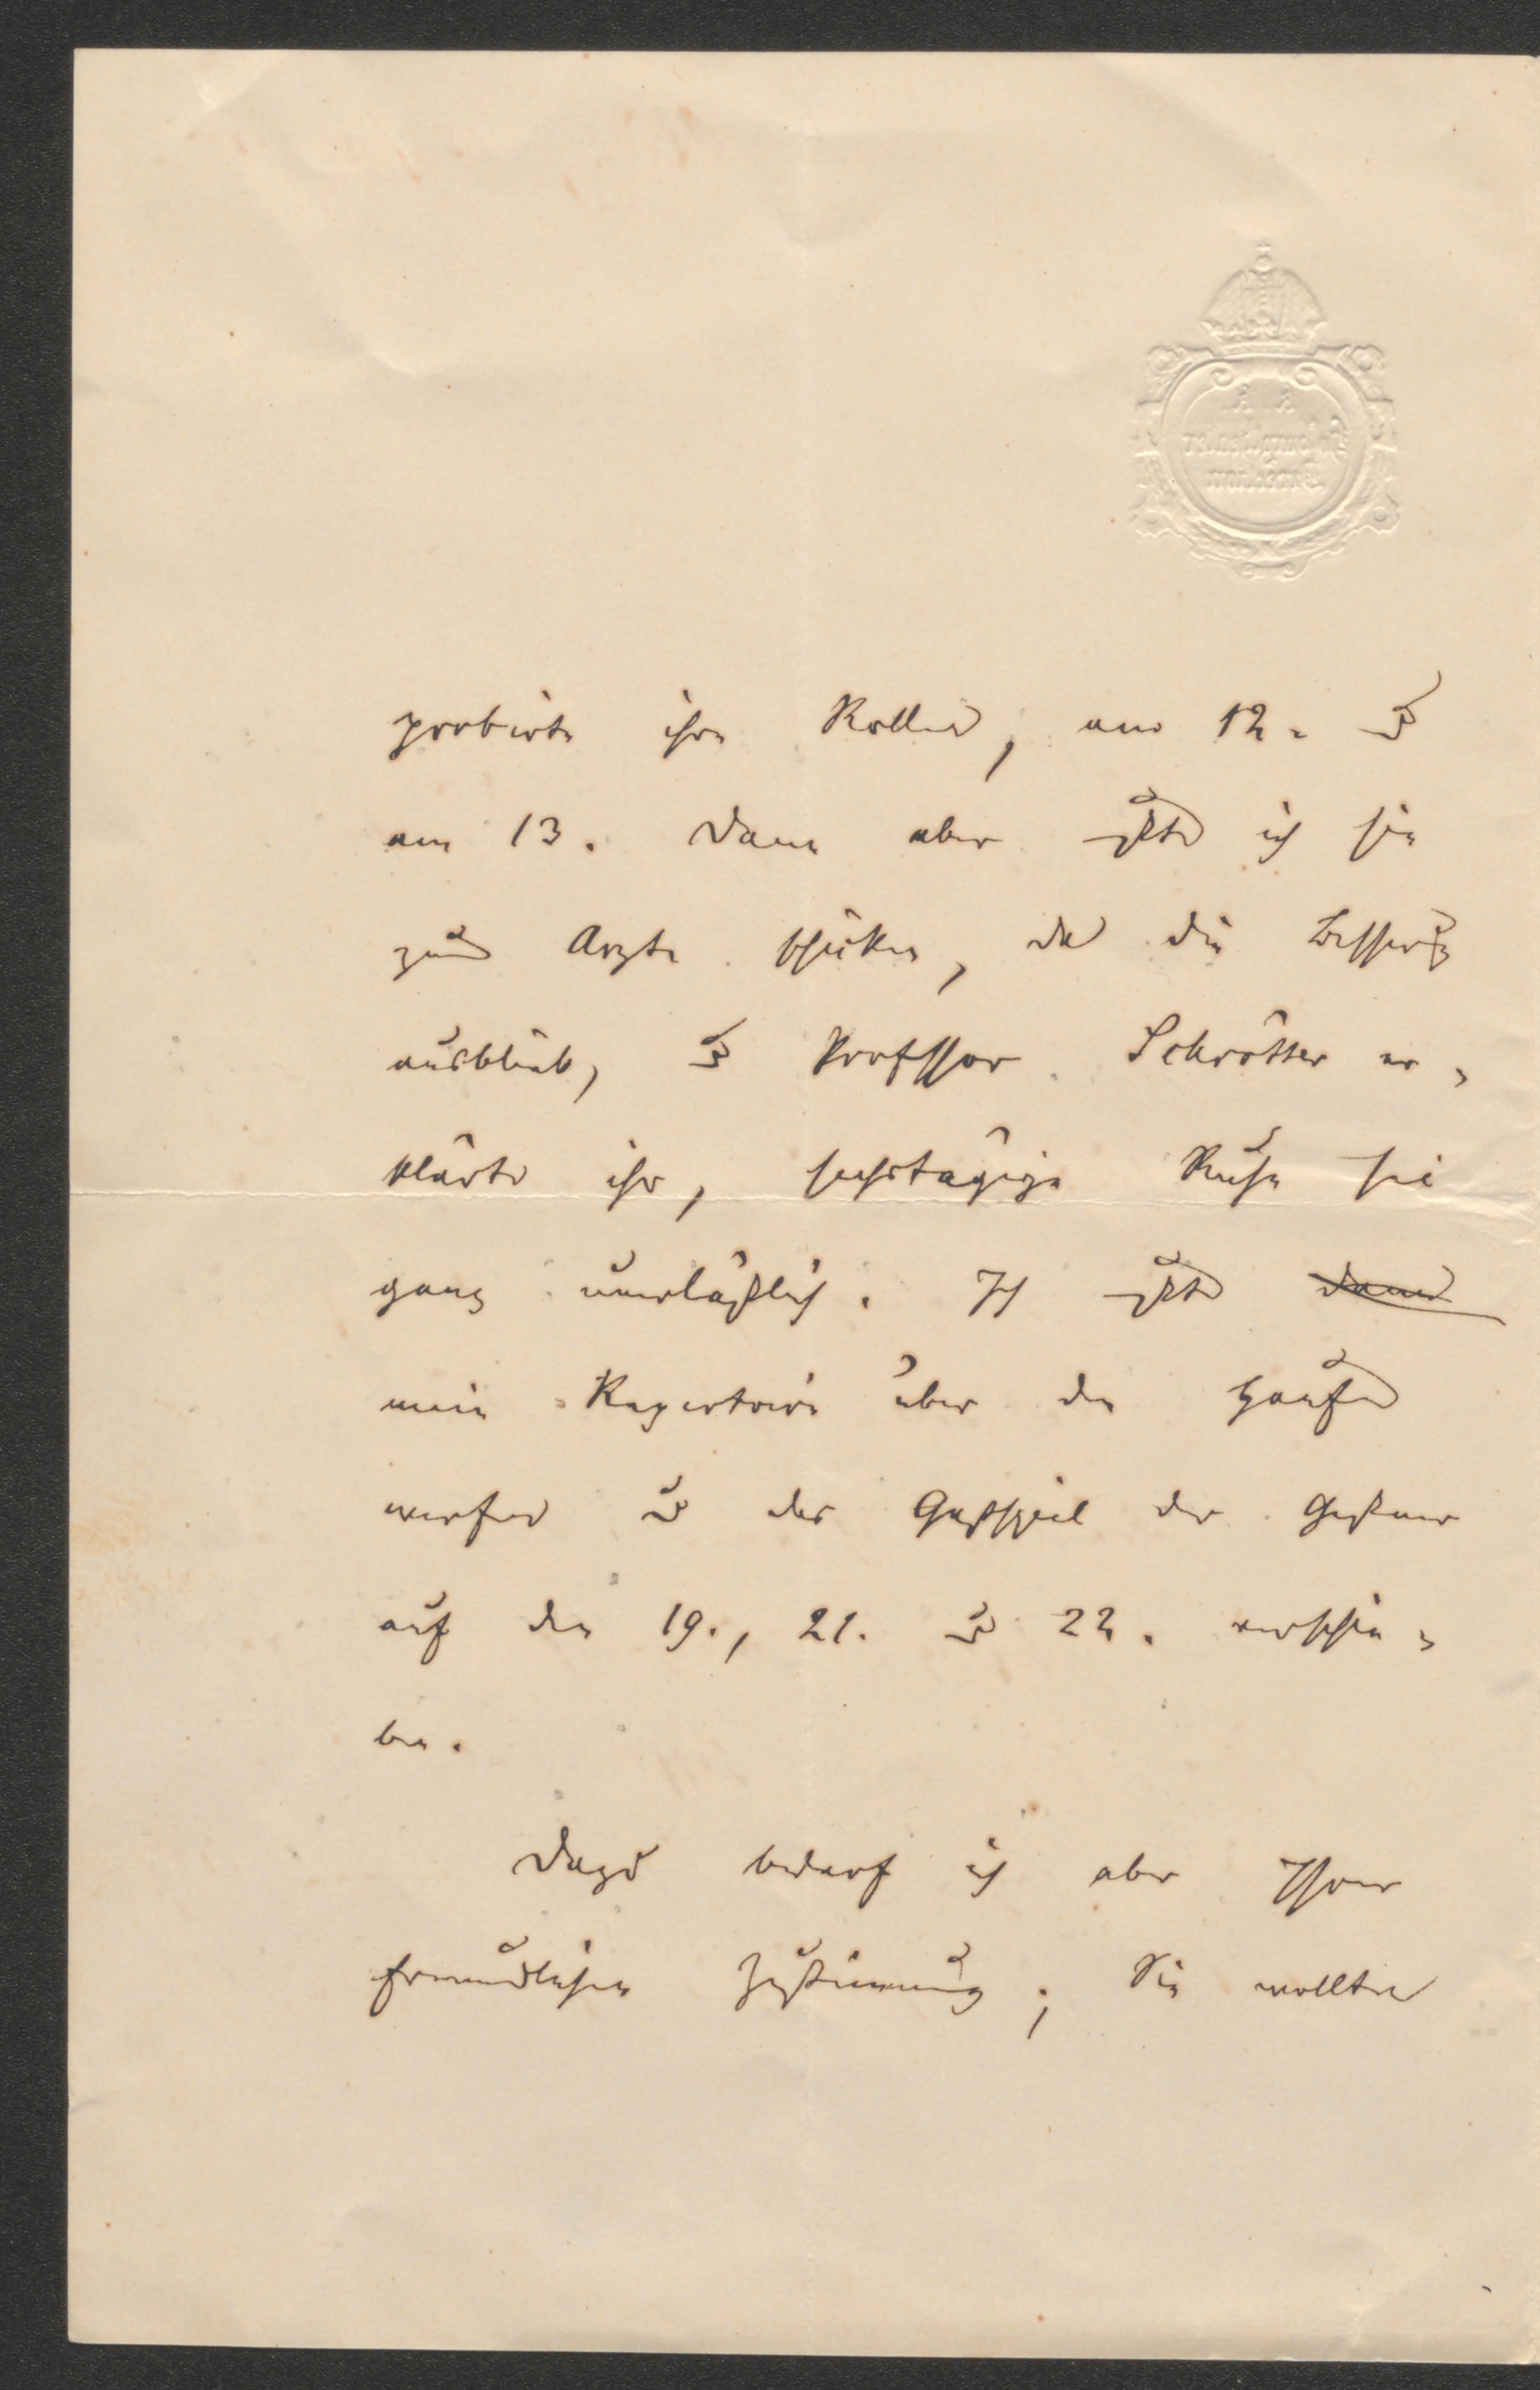 K. K.
Hofburgtheater
Direction
probirte ihre Rollen, am 12. u
am 13. Dann aber mußte ich sie
zum Arzte schicken, da die Besserung
ausblieb, u Professor Schrötter er-
klärte ihr, sechstägige Ruhe sei
ganz unerläßlich. Ich mußte dann
mein Repertoire über den Haufen
werfen u das Gastspiel der
auf den 19., 21. u 22. verschie-
ben.
Dazu bedarf ich aber Ihrer
freundlichen Zustimmung; Sie wollten